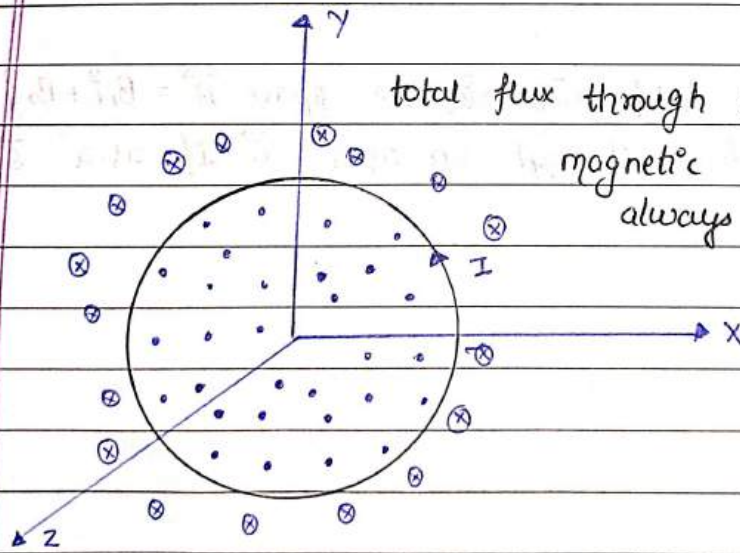 Y
total flux through
magnetic
always
I
X
Z